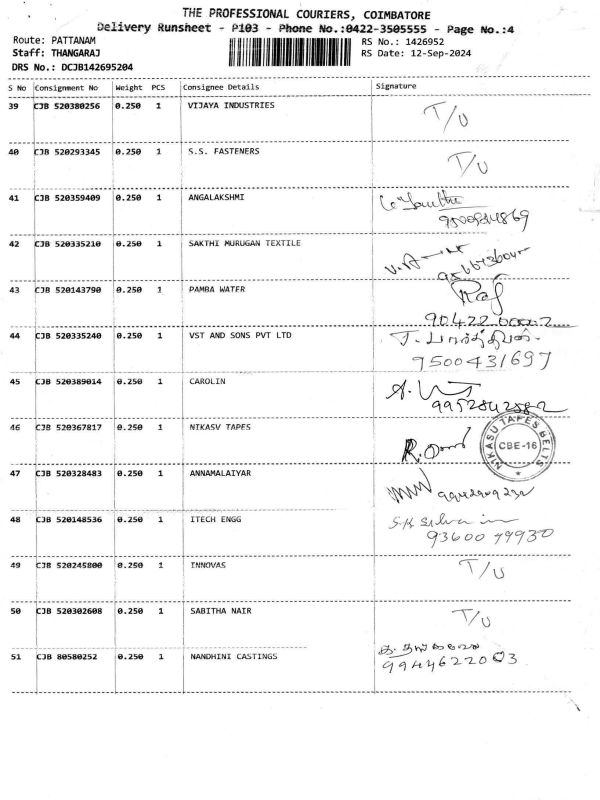 THE PROFESSIONAL COURIERS, COIMBATORE
Delivery Runsheet - P103 - Phone No.:0422-3505555 - Page No.:4
Route: PATTANAM
RS No.: 1426952
Staff: THANGARAJ
RS Date: 12-Sep-2024
DRS No.: DCJB142695204
S No Consignment No Weight PCS Consignee Details Signature
39 CJB 520380256 0.250 1 VIJAYA INDUSTRIES T/U
40 CJB 520293345 0.250 1 S.S. FASTENERS T/U
41 CJB 520359409 0.250 1 ANGALAKSHMI
42 CJB 520335210 0.250 1 SAKTHI MURUGAN TEXTILE
43 CJB 520143790 1 PAMBA WATER Raj
44 CJB 520335240 0.250 1 VST AND SONS PVT LTD
9500431697
45 CJB 520389014 0.250 1 CAROLIN
46 CJB 520367817 0.250 1 NIKASV TAPES
NIKASU TAPES BELTS
CBE-16
47 CJB 520328483 0.250 1 ANNAMALAIYAR
48 CJB 520148536 0.250 1 ITECH ENGG
9360079930
49 CJB 520245800 0.250 1 INNOVAS T/U
50 CJB 520302608 0.250 1 SABITHA NAIR T/U
51 CJB 80580252 0.250 1 NANDHINI CASTINGS
9944622003